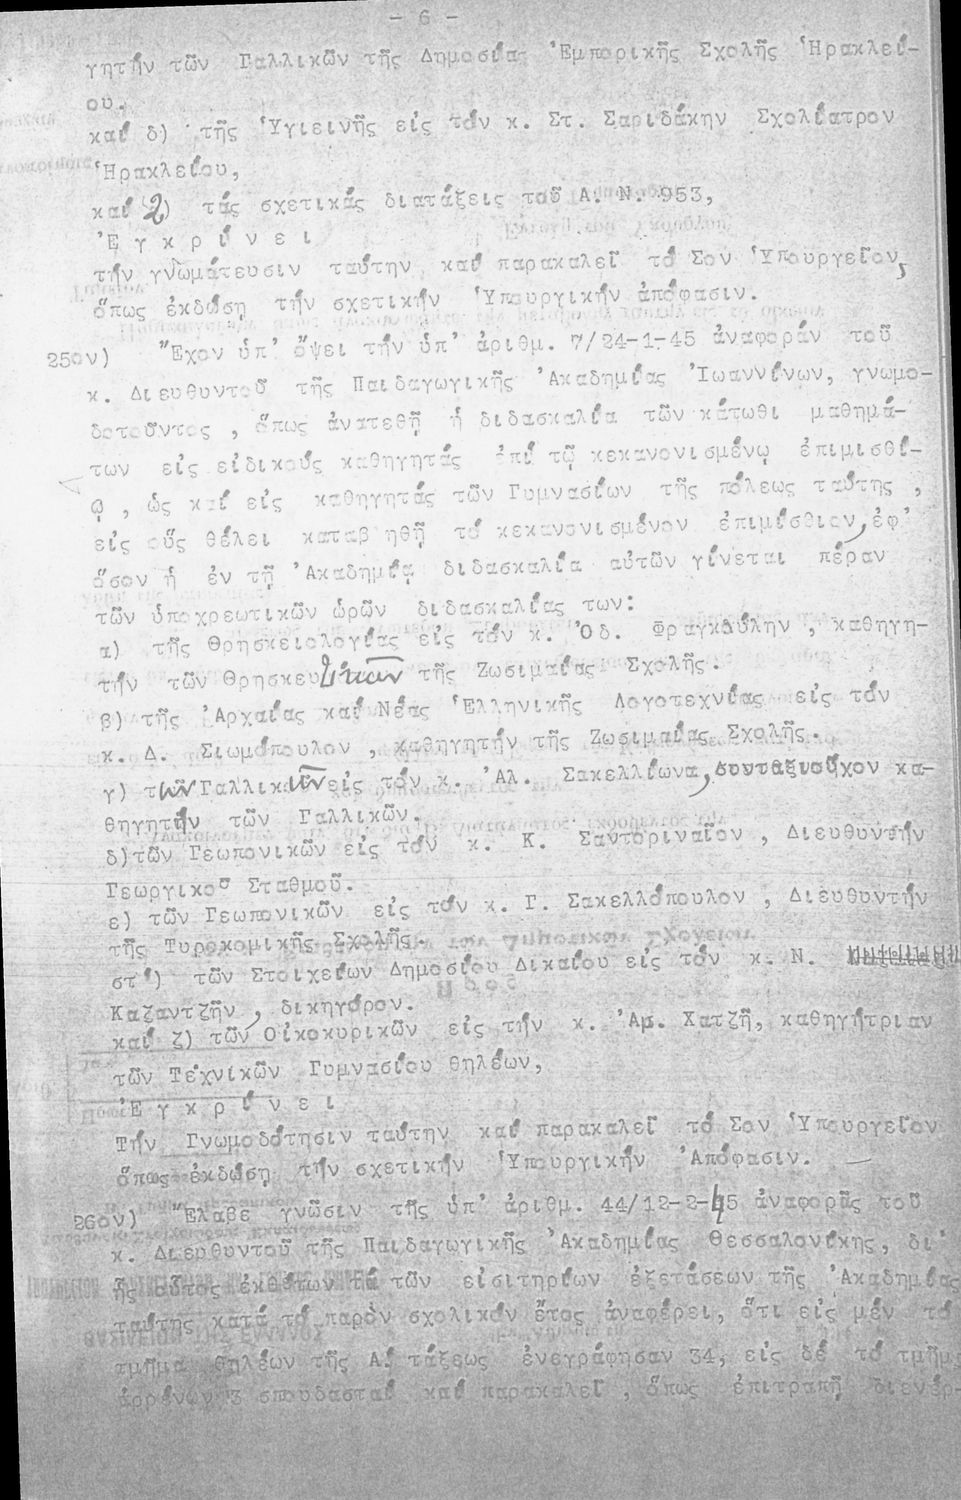 - 6 -
γητήν τῶν Γαλλικῶν τῆς Δημοσίας Ἐμπορικῆς Σχολῆς Ἡρακλεί-
ου.
καί δ) τῆς Ὑγιεινῆς εἰς τόν κ. Στ. Σαριδάκην Σχολίατρον
Ἡρακλείου,
καί 2) τάς σχετικάς διατάξεις τοῦ Α. Ν. 953,
Ἐ γ κ ρ ί ν ε ι
τήν γνωμάτευσιν ταύτην καί παρακαλεῖ τό Σον Ὑπουργεῖον,
ὅπως ἐκδώσῃ τήν σχετικήν Ὑπουργικήν ἀπόφασιν.
25ον) Ἔχον ὑπ' ὄψει τήν ὑπ' ἀριθμ. 7/24-1-45 ἀναφοράν τοῦ
κ. Διευθυντοῦ τῆς Παιδαγωγικῆς Ἀκαδημίας Ἰωαννίνων, γνωμο-
δοτοῦντος , ὅπως ἀνατεθῇ ἡ διδασκαλία τῶν κάτωθι μαθημά-
των εἰς εἰδικούς καθηγητάς ἐπί τῷ κεκανονισμένῳ ἐπιμισθί-
ῳ , ὡς καί εἰς καθηγητάς τῶν Γυμνασίων τῆς πόλεως ταύτης ,
εἰς οὕς θέλει καταβηθῇ τό κεκανονισμένον ἐπιμίσθιον, ἐφ'
ὅσον ἡ ἐν τῇ Ἀκαδημίᾳ διδασκαλία αὐτῶν γίνεται πέραν
τῶν ὑποχρεωτικῶν ὡρῶν διδασκαλίας των:
α) τῆς Θρησκειολογίας εἰς τόν κ. Ὀδ. Φραγκούλην , καθηγη-
τήν τῶν Θρησκευτικῶν τῆς Ζωσιμαίας Σχολῆς.
β) τῆς Ἀρχαίας καί Νέας Ἑλληνικῆς Λογοτεχνίας εἰς τόν
κ. Δ. Σιωμόπουλον , καθηγητήν τῆς Ζωσιμαίας Σχολῆς.
γ) τῶν Γαλλικῶν εἰς τόν κ. Ἀλ. Σακελλίωνα, συνταξιοῦχον κα-
θηγητήν τῶν Γαλλικῶν.
δ)τῶν Γεωπονικῶν εἰς τόν κ. Κ. Σαντοριναῖον , Διευθυντήν
Γεωργικοῦ Σταθμοῦ.
ε) τῶν Γεωπονικῶν εἰς τόν κ. Γ. Σακελλόπουλον , Διευθυντήν
τῆς Τυροκομικῆς Σχολῆς.
στ') τῶν Στοιχείων Δημοσίου Δικαίου εἰς τόν κ. Ν.
Καζαντζῆν , δικηγόρον.
καί ζ) τῶν Οἰκοκυρικῶν εἰς τήν κ. Ἀμ. Χατζῆ, καθηγήτριαν
τῶν Τεχνικῶν Γυμνασίου θηλέων,
Ἐ γ κ ρ ί ν ε ι
Τήν Γνωμοδότησιν ταύτην καί παρακαλεῖ τό Σον Ὑπουργεῖον
ὅπως ἐκδώσῃ τήν σχετικήν Ὑπουργικήν Ἀπόφασιν.
26ον) Ἔλαβε γνῶσιν τῆς ὑπ' ἀριθμ. 44/12-2-45 ἀναφορᾶς τοῦ
κ. Διευθυντοῦ τῆς Παιδαγωγικῆς Ἀκαδημίας Θεσσαλονίκης, δι'
ἧς οὗτος ἐκθέτων τά τῶν εἰσιτηρίων ἐξετάσεων τῆς Ἀκαδημίας
ταύτης κατά τό παρὸν σχολικόν ἔτος ἀναφέρει, ὅτι εἰς μέν τό
τμῆμα θηλέων τῆς Α' τάξεως ἐνεγράφησαν 34, εἰς δέ τό τμῆμα
ἀρρένων 3 σπουδασταί καί παρακαλεῖ , ὅπως ἐπιτραπῇ διενέρ-